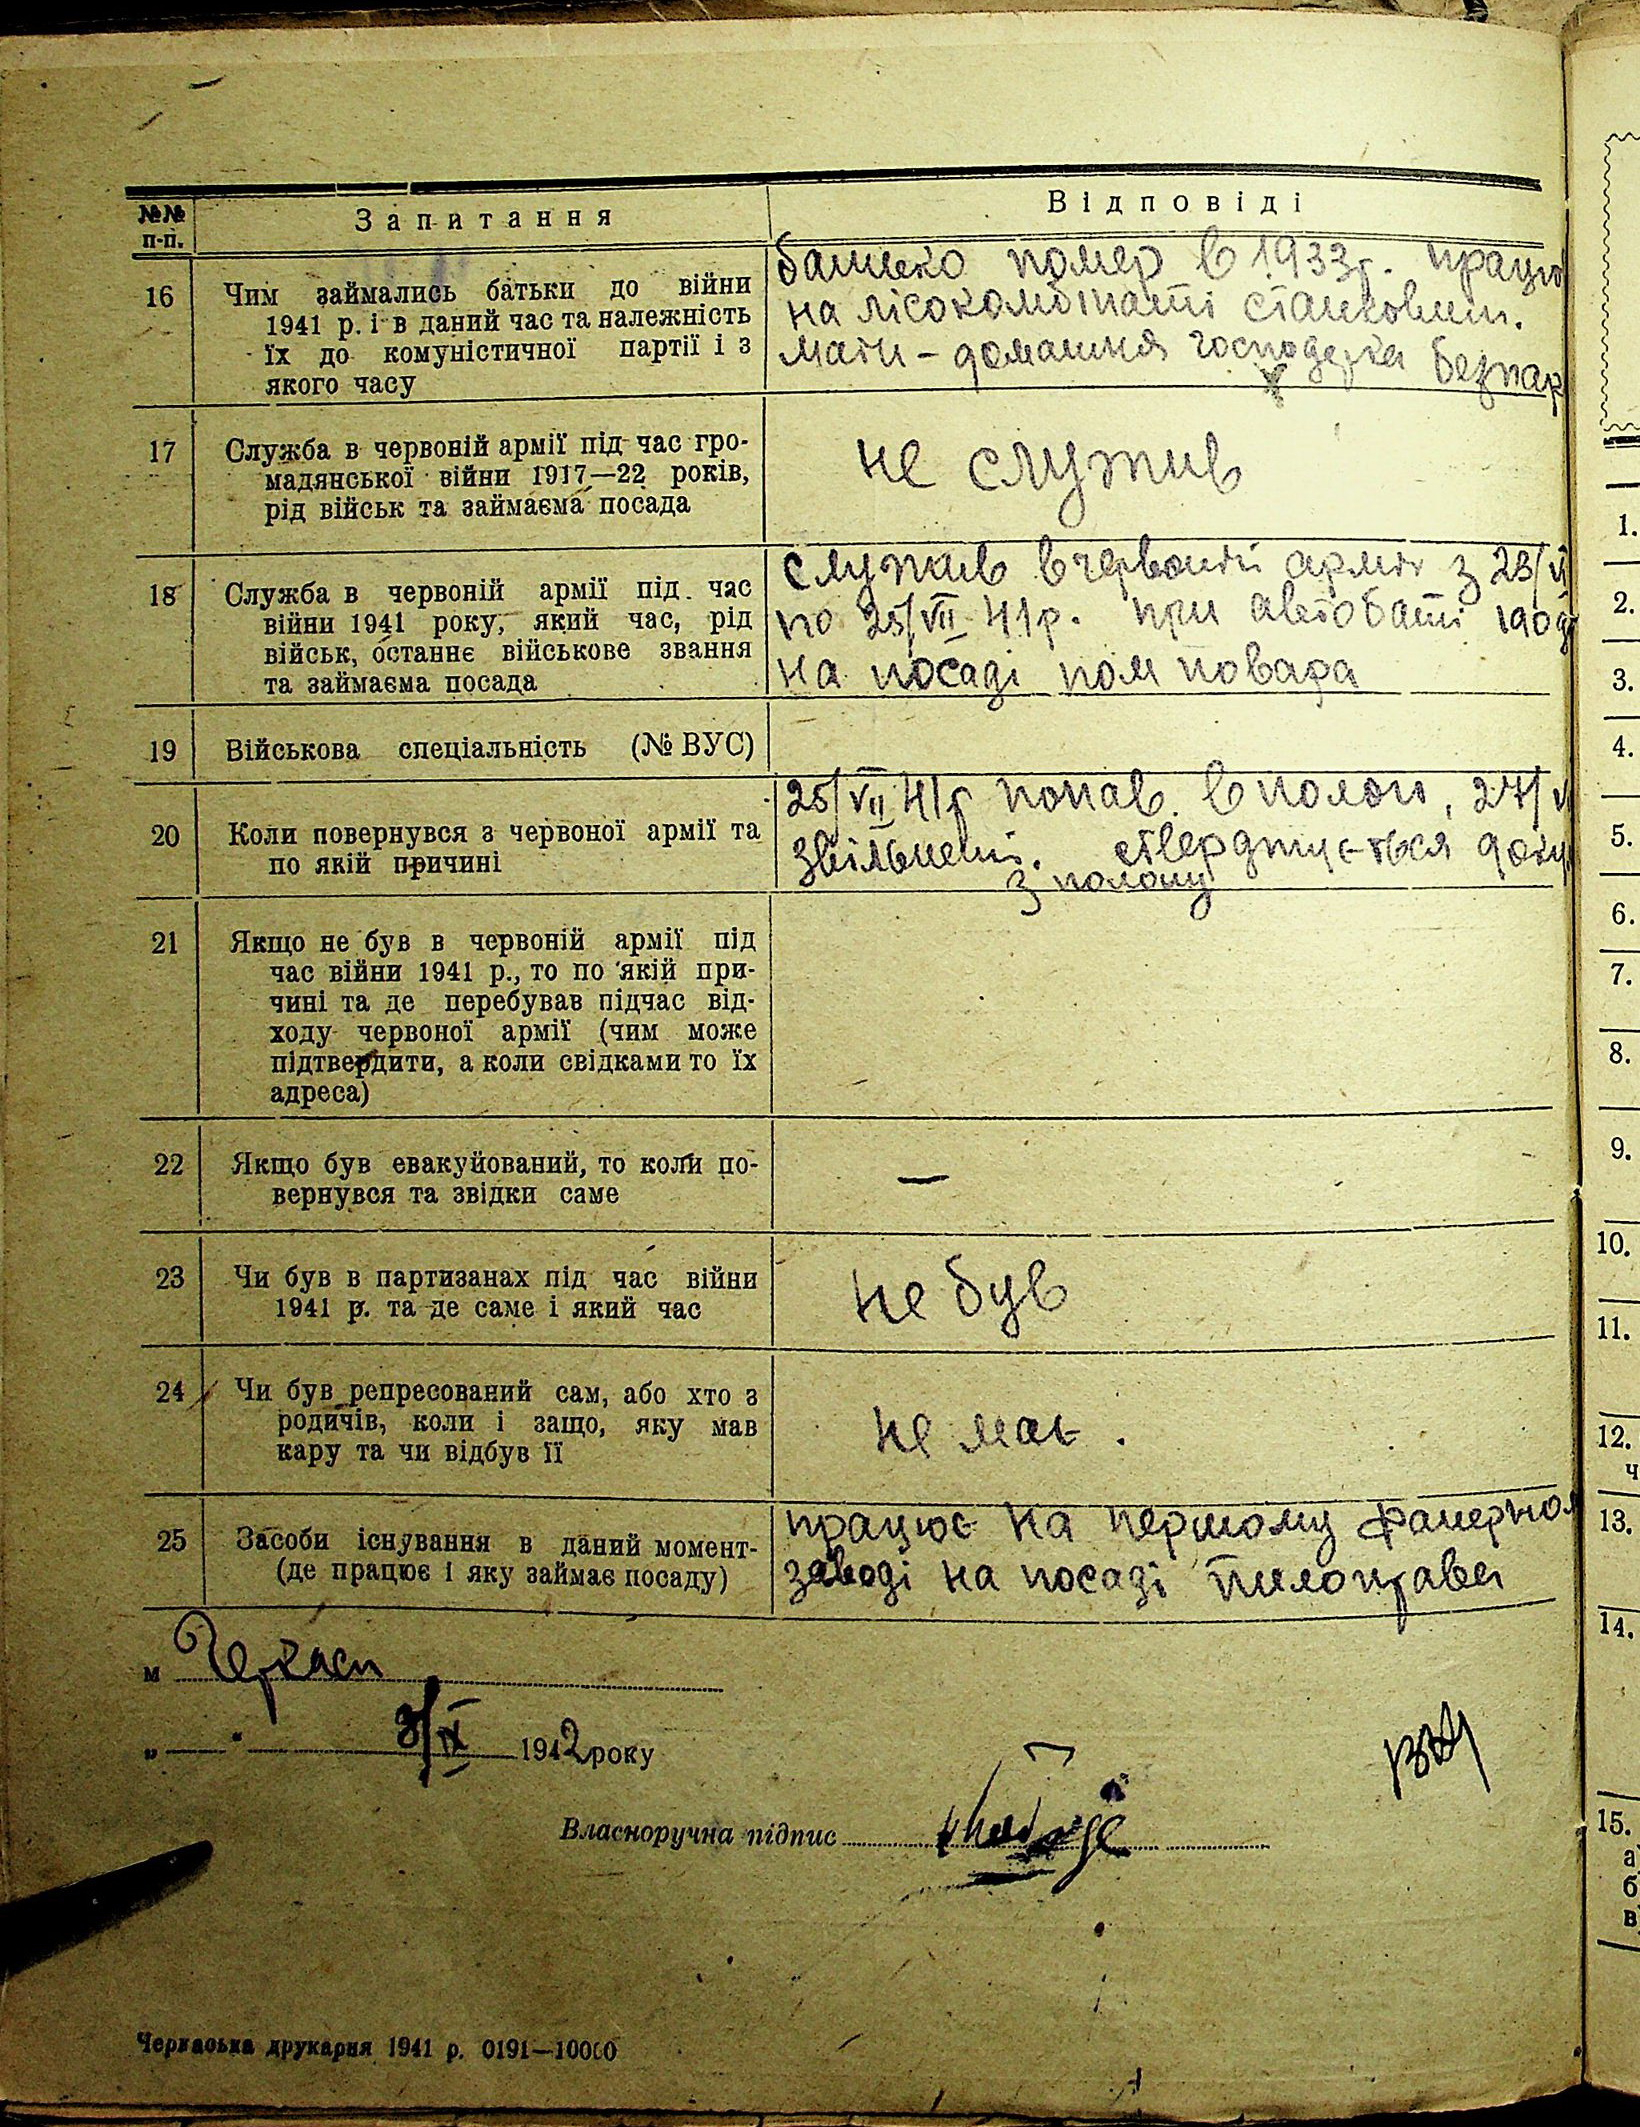 №№ п-п.
Запитання
Відповіді
16
Чим займались батьки до війни
1941 р. і в даний час та належність
їх до комуністичної партії і з
якого часу
батько помер в 1933 р. працю
на лісокомбінаті станковим.
мати - домашня господарка безпар
17
Служба в червоній армії під час гро-
мадянської війни 1917—22 років,
рід військ та займаєма посада
не служив
18
Служба в червоній армії під час
війни 1941 року, який час, рід
військ, останнє військове звання
та займаєма посада
служив в червоній армії з 23/VI
по 25/VII 41 р. при автобаті
на посаді пом повара
19
Військова спеціальність (№ ВУС)
20
Коли повернувся з червоної армії та
по якій причині
25/VII 41 р попав в полон, 27/
звільнений. стверджується доку
з полону
21
Якщо не був в червоній армії під
час війни 1941 р., то по якій при-
чині та де перебував підчас від-
ходу червоної армії (чим може
підтвердити, а коли свідками то їх
адреса)
22
Якщо був евакуйований, то коли по-
вернувся та звідки саме
—
23
Чи був в партизанах під час війни
1941 р. та де саме і який час
не був
24
Чи був репресований сам, або хто з
родичів, коли і защо, яку мав
кару та чи відбув її
не має .
25
Засоби існування в даний момент-
(де працює і яку займає посаду)
працює на першому фанерном
заводі на посаді пилоправа
м Черкаси
„ “ 3/IX 1942 року
Власноручна підпис
Черкаська друкарня 1941 р. 0191—10000
1.
2.
3.
4.
5.
6.
7.
8.
9.
10.
11.
12.
ч
13.
14.
15.
а
б
в